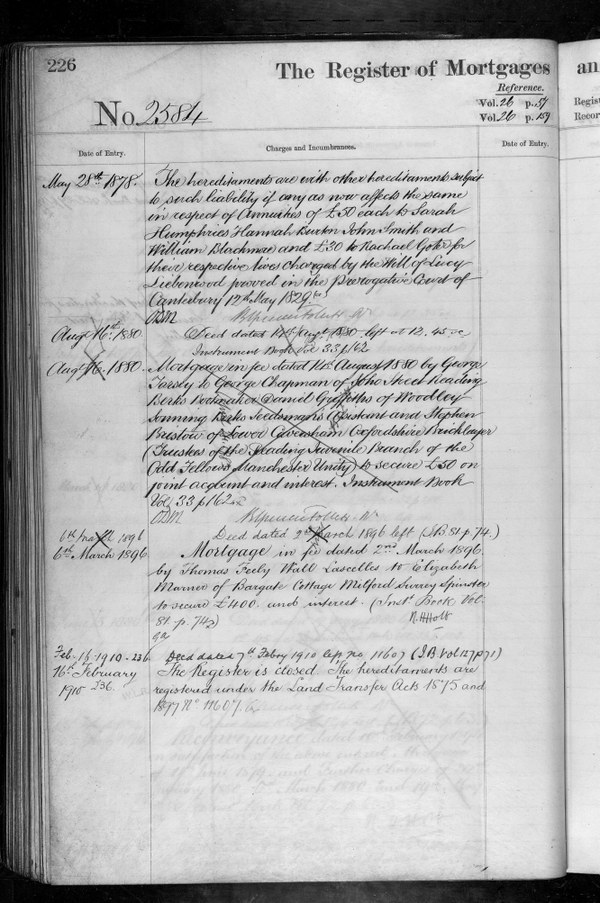 226
The Register of Mortgages
an
Reference.
Vol. 26 p. 57
Vol. 26 p. 159
Regist
Recor
No. 2584
Date of Entry.
Charges and Incumbrances.
Date of Entry.
May 28th 1878.
The hereditaments are with other hereditaments subject
to such liability if any as now affects the same
in respect of Annuities of £50 each to Sarah
Humphries Hannah Burton John Smith and
William Blackmore and £30 to Rachael for
their respective lives charged by the Will of Lucy
proved in the Prerogative Court of
Canterbury 12th May 1829
Augt 16th 1880.
Deed dated Augt 1880 left at 12.45
Instrument Book Vol 33 p 162
Augt 16. 1880.
Mortgage in fee dated August 1880 by George
to George Chapman of John Street Reading
Berks Daniel Griffiths of Woodley
Sonning Berks Seedsman's Assistant and Stephen
Bristow of Lower Caversham Oxfordshire Bricklayer
(Trustees of the Reading Juvenile Branch of the
Odd Fellows Manchester Unity) to secure £50 on
joint account and interest. Instrument Book
Vol 33 p 162
6th Mar 1896
Deed dated 2nd March 1896 left (I.B. 81 p. 74.)
6th March 1896
Mortgage in fee dated 2nd March 1896.
by Thomas Wall Lascelles to Elizabeth
of Bargate Cottage Milford Surrey Spinster
to secure £400. and interest. (Inst. Book Vol.
81 p. 74)
Feb. 16 1910 - 236
Deed dated 7th Febry 1910 left no 11607 (I.B. Vol 127 p 71)
16th February
The Register is closed The hereditaments are
1910 236.
registered under the Land Transfer Acts 1875 and
1897 No 11607.